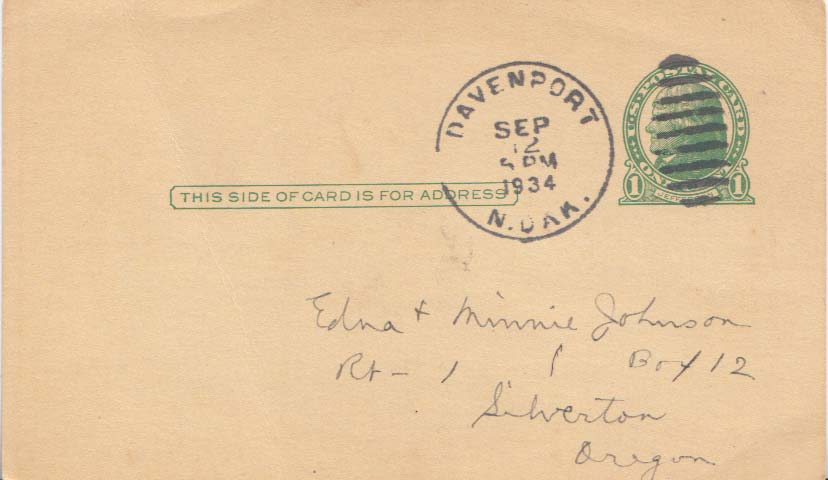 DAVENPORT
SEP
12
5 PM
1934
N. DAK.
U.S. POSTAL CARD
ONE
1 JEFFERSON 1
THIS SIDE OF CARD IS FOR ADDRESS
Edna + Minnie Johnson
Rt - 1 Box 12
Silverton
Oregon